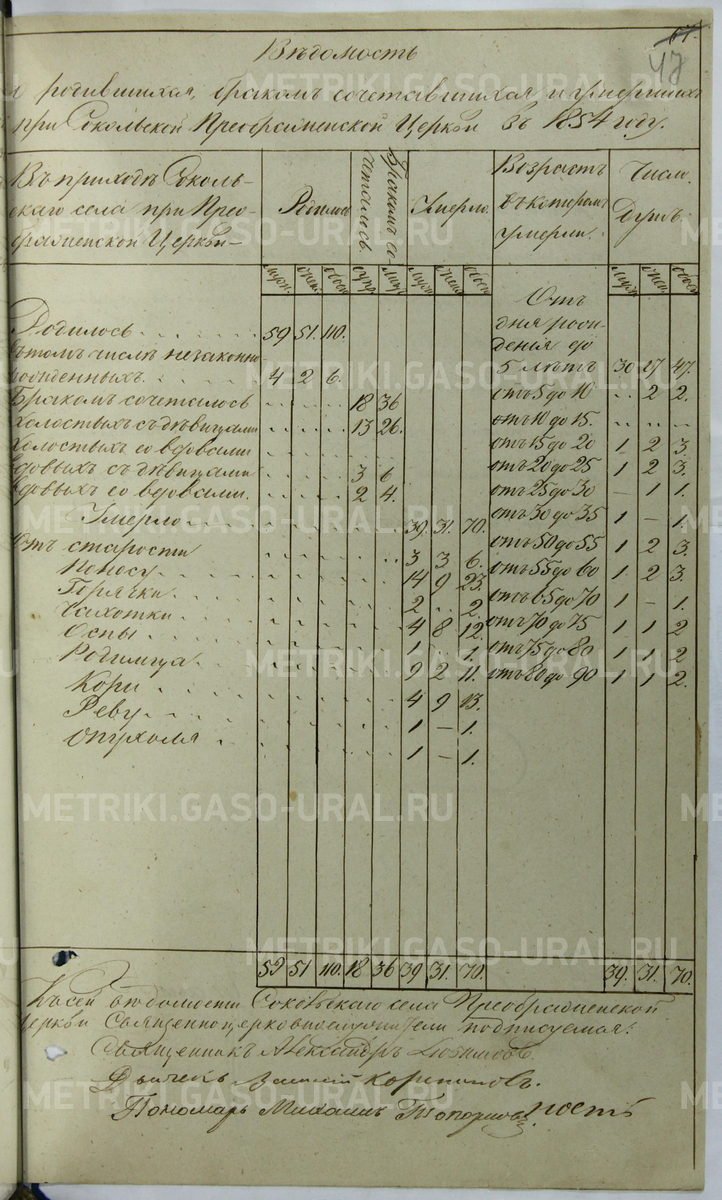 67.
47
Вѣдомость
родившихся, бракомъ сочетавшихся и умершихъ
при Сокольской Преображенской Церкви въ 1854 году.
Въ приходѣ Соколь-
скаго села при Прео-
браженской Церкви
Родилось
Бракомъ со-
четалось.
Умерло.
Возрастъ
въ которомъ
умерли.
Число
Душъ.
муж. жен. обоег. супр. лицъ муж. жен. обоег. муж. жен. обоег.
Родилось 59 51 110.
въ томъ числѣ незаконно
рожденныхъ. 4 2 6.
Бракомъ сочеталось 18 36
Холостыхъ съ дѣвицами 13 26.
холостыхъ со вдовами
вдовыхъ съ дѣвицами 3 6
вдовыхъ со вдовами. 2 4.
Умерло 39. 31. 70.
Отъ старости 3 3 6.
Поносу 14 9 23
Горячки 2 .. 2.
Чахотки 4 8 12.
Оспы 1 .. 1.
Родимца 9 2 11.
Кори 4 9 13.
Реву 1 — 1.
опухоля 1 — 1.
Отъ
дня рож-
денія до
5 лѣтъ 30 17 47.
отъ 5 до 10 .. 2 2.
отъ 10 до 15.
отъ 15 до 20 1 2 3.
отъ 20 до 25 1 2 3.
отъ 25 до 30 — 1 1.
отъ 30 до 35 1 — 1.
отъ 50 до 55 1 2 3.
отъ 55 до 60 1 2 3.
отъ 65 до 70 1 — 1.
отъ 70 до 75 1 1 2
отъ 75 до 80 1 1 2
отъ 80 до 90 1 1 2.
59 51 110. 18 36 39 31. 70. 39. 31. 70.
Къ сей вѣдомости Сокольскаго села Преображенской
Церкви Священноцерковнослужители подписуемся:
Священникъ Александръ
Дьячекъ
Пономарь Михаилъ Топорковъ
METRIKI.GASO-URAL.RU